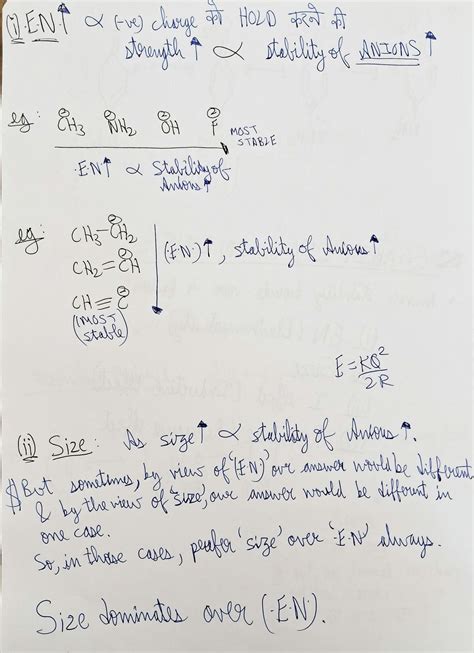 (i) E.N↑ ∝ (-ve) charge को HOLD करने की
strength↑ ∝ stability of ANIONS↑
eg: ⊖CH3 ⊖NH2 ⊖OH ⊖F MOST STABLE
E.N↑ ∝ Stability of
Anions↑
eg: CH3-⊖CH2
CH2=⊖CH (E.N.)↑, stability of Anions↑
CH≡⊖C
(MOST
stable)
E=KQ²/2R
(ii) Size: As size↑ ∝ stability of Anions↑.
But sometimes, by view of '(EN)' our answer would be different
& by the view of 'size', our answer would be different in
one case.
So, in those cases, prefer 'size' over 'E.N' always.
Size dominates over (E.N.).